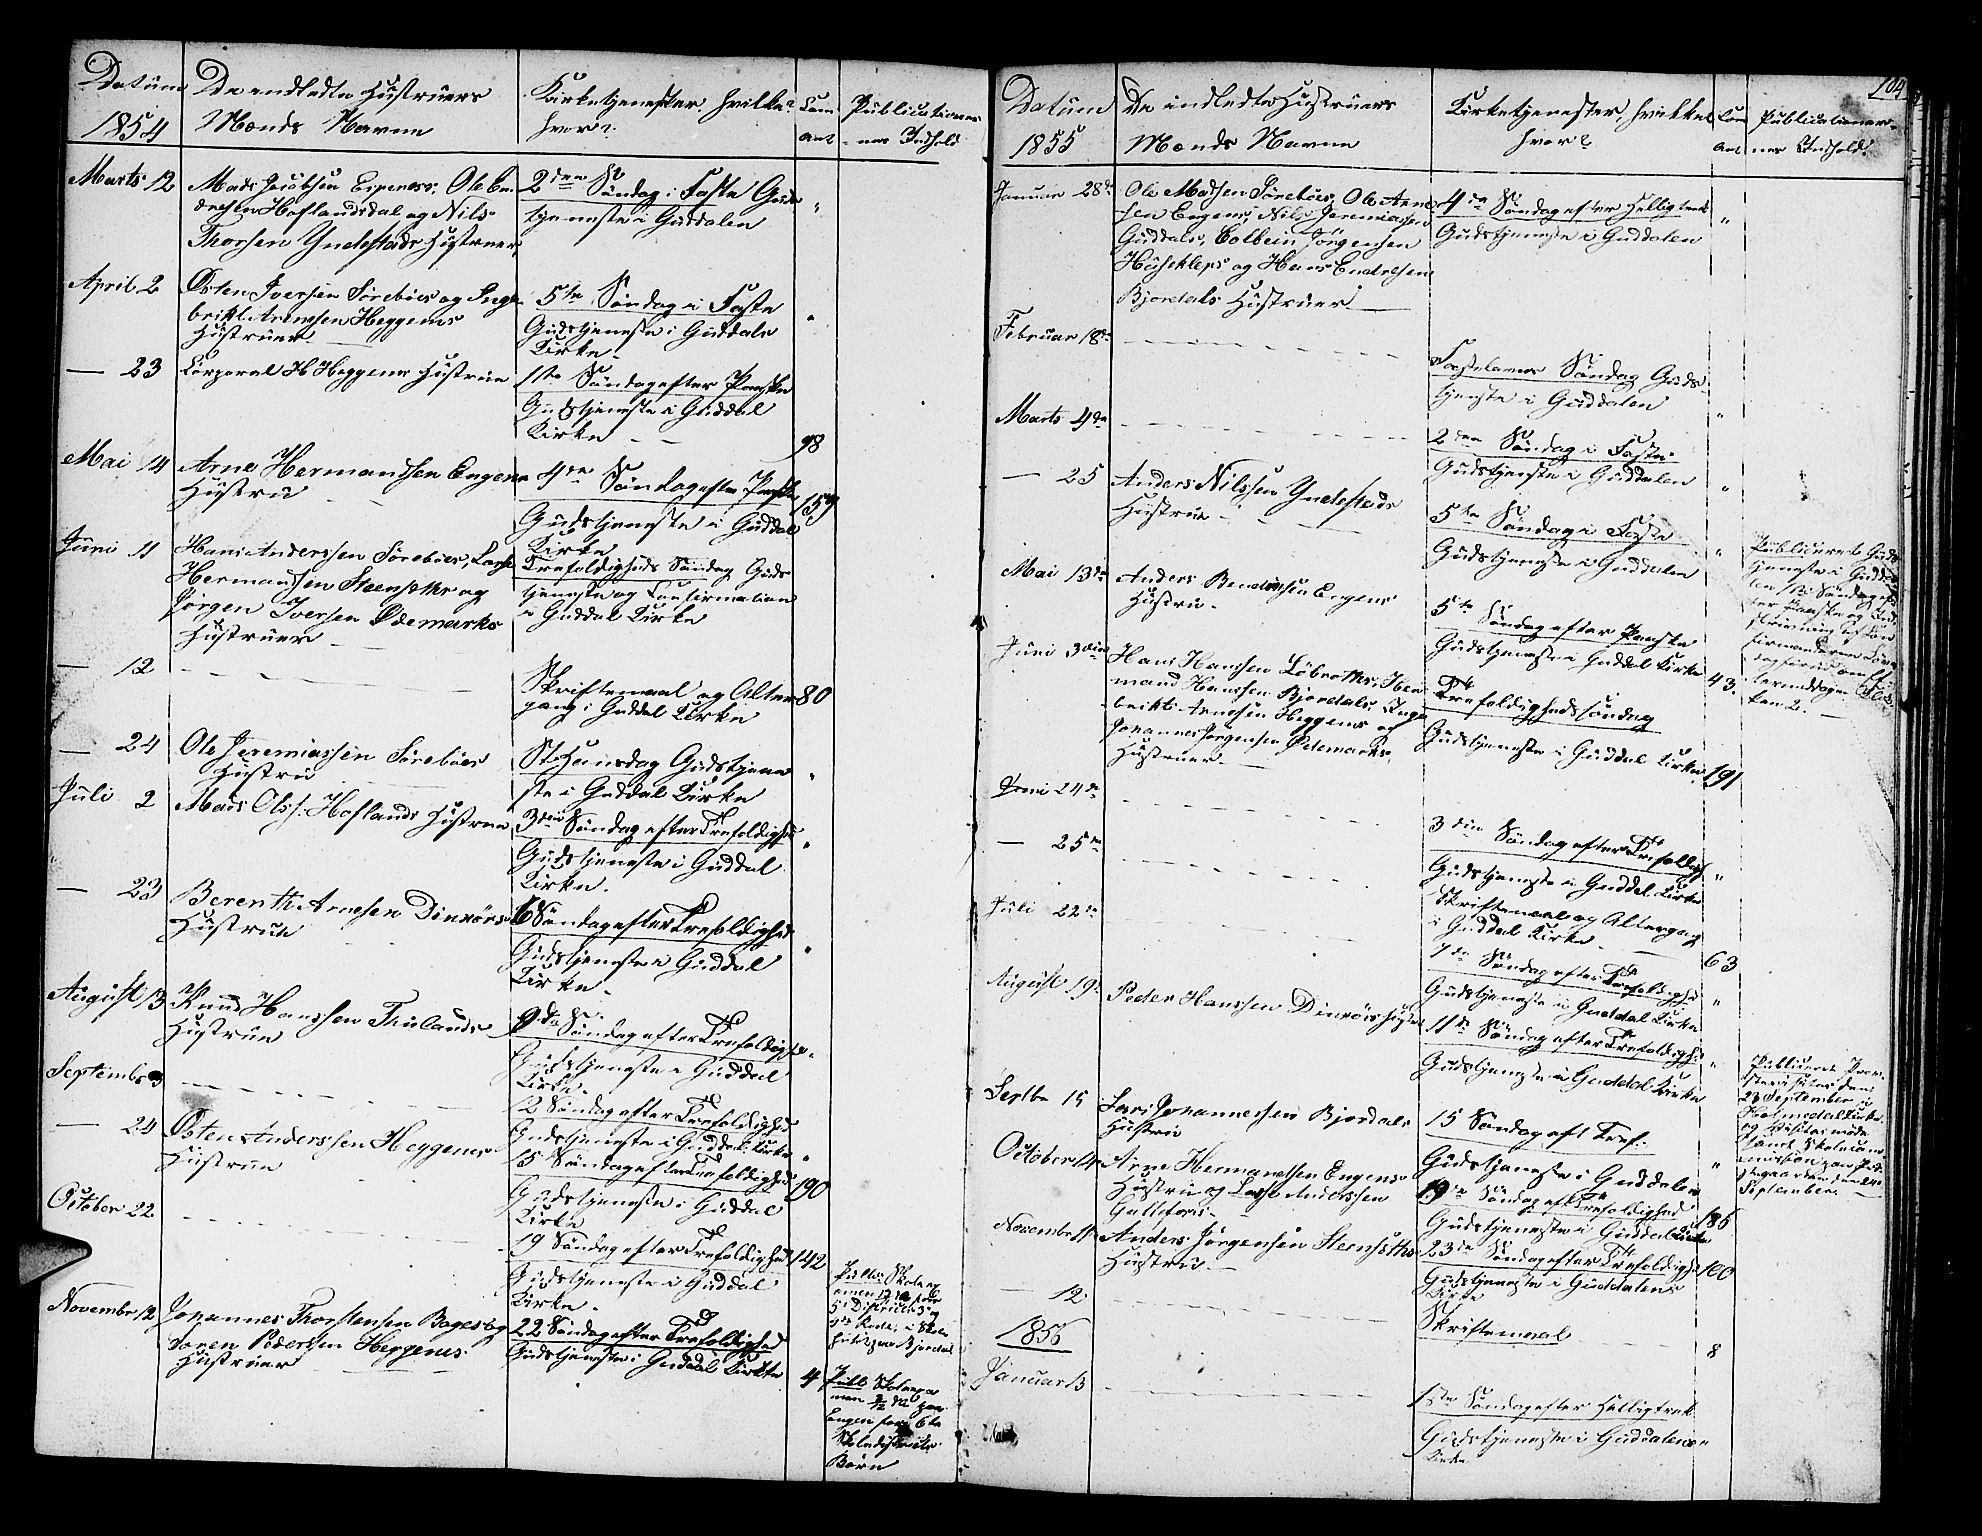 Datum
1854
De indledte Hustruers
Mænds Navne
Kirketjenester, hvilke?
hvor?
Com
ant
Publicationer-
nes Indhold
Marts 12
Mads Jacobsen Espenes, Ole En-
dresen Hoflandsdal og Nils
Thorsen Yndestads Hustruer
2den Søndag i Faste Guds
tjeneste i Guddalen
"
April 2
Østen Iversen Sørebøes og Inge-
brikt Arnesen Heggenes
Hustruer
5te Søndag i Faste
Gudstjeneste i Guddals
Kirke
"
— 23
Corporal H Heggenes Hustrue
1ste Søndag efter Paaske
Gudstjeneste i Guddal
Kirke
98
Mai 14
Arne Hermandsen Engene
Hustru
4de Søndag efter Paaske
Gudstjeneste i Guddal
Kirke
157
Juni 11
Hans Anderssen Sørebøes, Lasse
Hermansen Steensæthr og
Jørgen Iversen Ødemarks
Hustruer
Trefoldigheds Søndag Guds
tjeneste og Confirmation
i Guddal Kirke
— 12
Skriftemaal og Alter
gang i Guddal Kirke
80
— 24
Ole Jeremiassen Sørebøes
Hustru
St Hansdag Gudstjene
ste i Guddal Kirke
"
Juli 2
Mads Olss: Hoflands Hustrue
3die Søndag efter Trefoldighed
Gudstjeneste i Guddal
Kirke.
"
— 23
Berenth Arnesen Dinæørs
Hustrue
6 Søndag efter Trefoldighed
Gudstjeneste i Guddal
Kirke
"
August 13
Knud Hanssen Thulands
Hustrue
9de Søndag efter Trefoldighed
Gudstjeneste i Guddal
Kirke.
Septembr 3
12 Søndag efter Trefoldighed
Gudstjeneste i Guddal Kirke
"
— 24
Østen Anderssen Heggenes
Hustrue
15 Søndag efter Trefoldighed
Gudstjeneste i Guddal
Kirke
190
October 22
19 Søndag efter Trefoldighed
Gudstjeneste i Guddal
Kirke.
142
Novembr 12
Johannes Thorstensen Bages og
Søren Pedersen Heggenes
Hustruer
22 Søndag efter Trefoldighed
Gudstjeneste i Guddal Kirke
4
Børn
104
Datum
1855
De indledte Hustruers
Mænds Navne
Kirketjenester, hvilke
hvor?
Com
ant
Publicationer-
nes Indhold
Januar 28de
Ole Madsen Sørebøes, Ole Arne
sen Engens, Nils Jeremiassen
Guddals, Colbein Jørgensen
Husekleps og Hans Endresen
Bjordals Hustruer
4de Søndag efter Helligtrek
Gudstjeneste i Guddalen
"
Februar 18de
Fastelavns Søndag Guds-
tjeneste i Guddalen
"
Marts 4de
2den Søndag i Faste
Gudstjeneste i Guddalen
"
— 25
Anders Nilssen Yndestads
Hustrue
5te Søndag i Faste
Gudstjeneste i Guddalen
"
Mai 13de
Anders Bendixsen Engens
Hustru.
5te Søndag efter Paaske
Gudstjeneste i Guddal Kirke
43.
Juni 3die
Hans Hanssen Løbroths, Her
mand Hanssen Bjordals, Inge
brikt Arnesen Heggenes og
Johannes Jørgensen Ødemarks
Hustruer
Trefoldighedssøndag
Gudstjeneste i Guddal Kirke
191
Juni 24de
3die Søndag efter Trefoldigh
Gudstjeneste i Guddal Kirke
"
— 25de
Skriftemaal og Altergang
i Guddal Kirke
63
Juli 22de
7de Søndag efter Trefoldighed
Gudstjeneste i Guddal Kirke
"
August 19de
Peder Hanssen Dinæørs Hustru
11te Søndag efter Trefoldighed
Gudstjeneste i Guddal Kirke
"
Septbr 15
Lars Johannessen Bjordals
Hustru
15 Søndag eft Tref:
Gudstjeneste i Guddalen
"
Publiceret Prov-
stevisitas den
23 September i
Holmedal Kirke
og Visitasmøde
samt Skolecom
mission paa Præ
stegaarden den 24
September.
October 14
Arne Hermanssen Engens
Hustru og Lasse Anderssen
19de Søndag eft Trefoldighed
Gudstjeneste i Guddal Kirke
186
November 11te
Anders Jørgensen Steensæths
Hustru
23de Søndag efter Trefoldighed
Gudstjeneste i Guddalens
Kirke
100
— 12.
Skriftemaal
8
1856
Januar 13
1ste Søndag efter Helligtrek
Gudstjeneste i Guddalens
Kirke